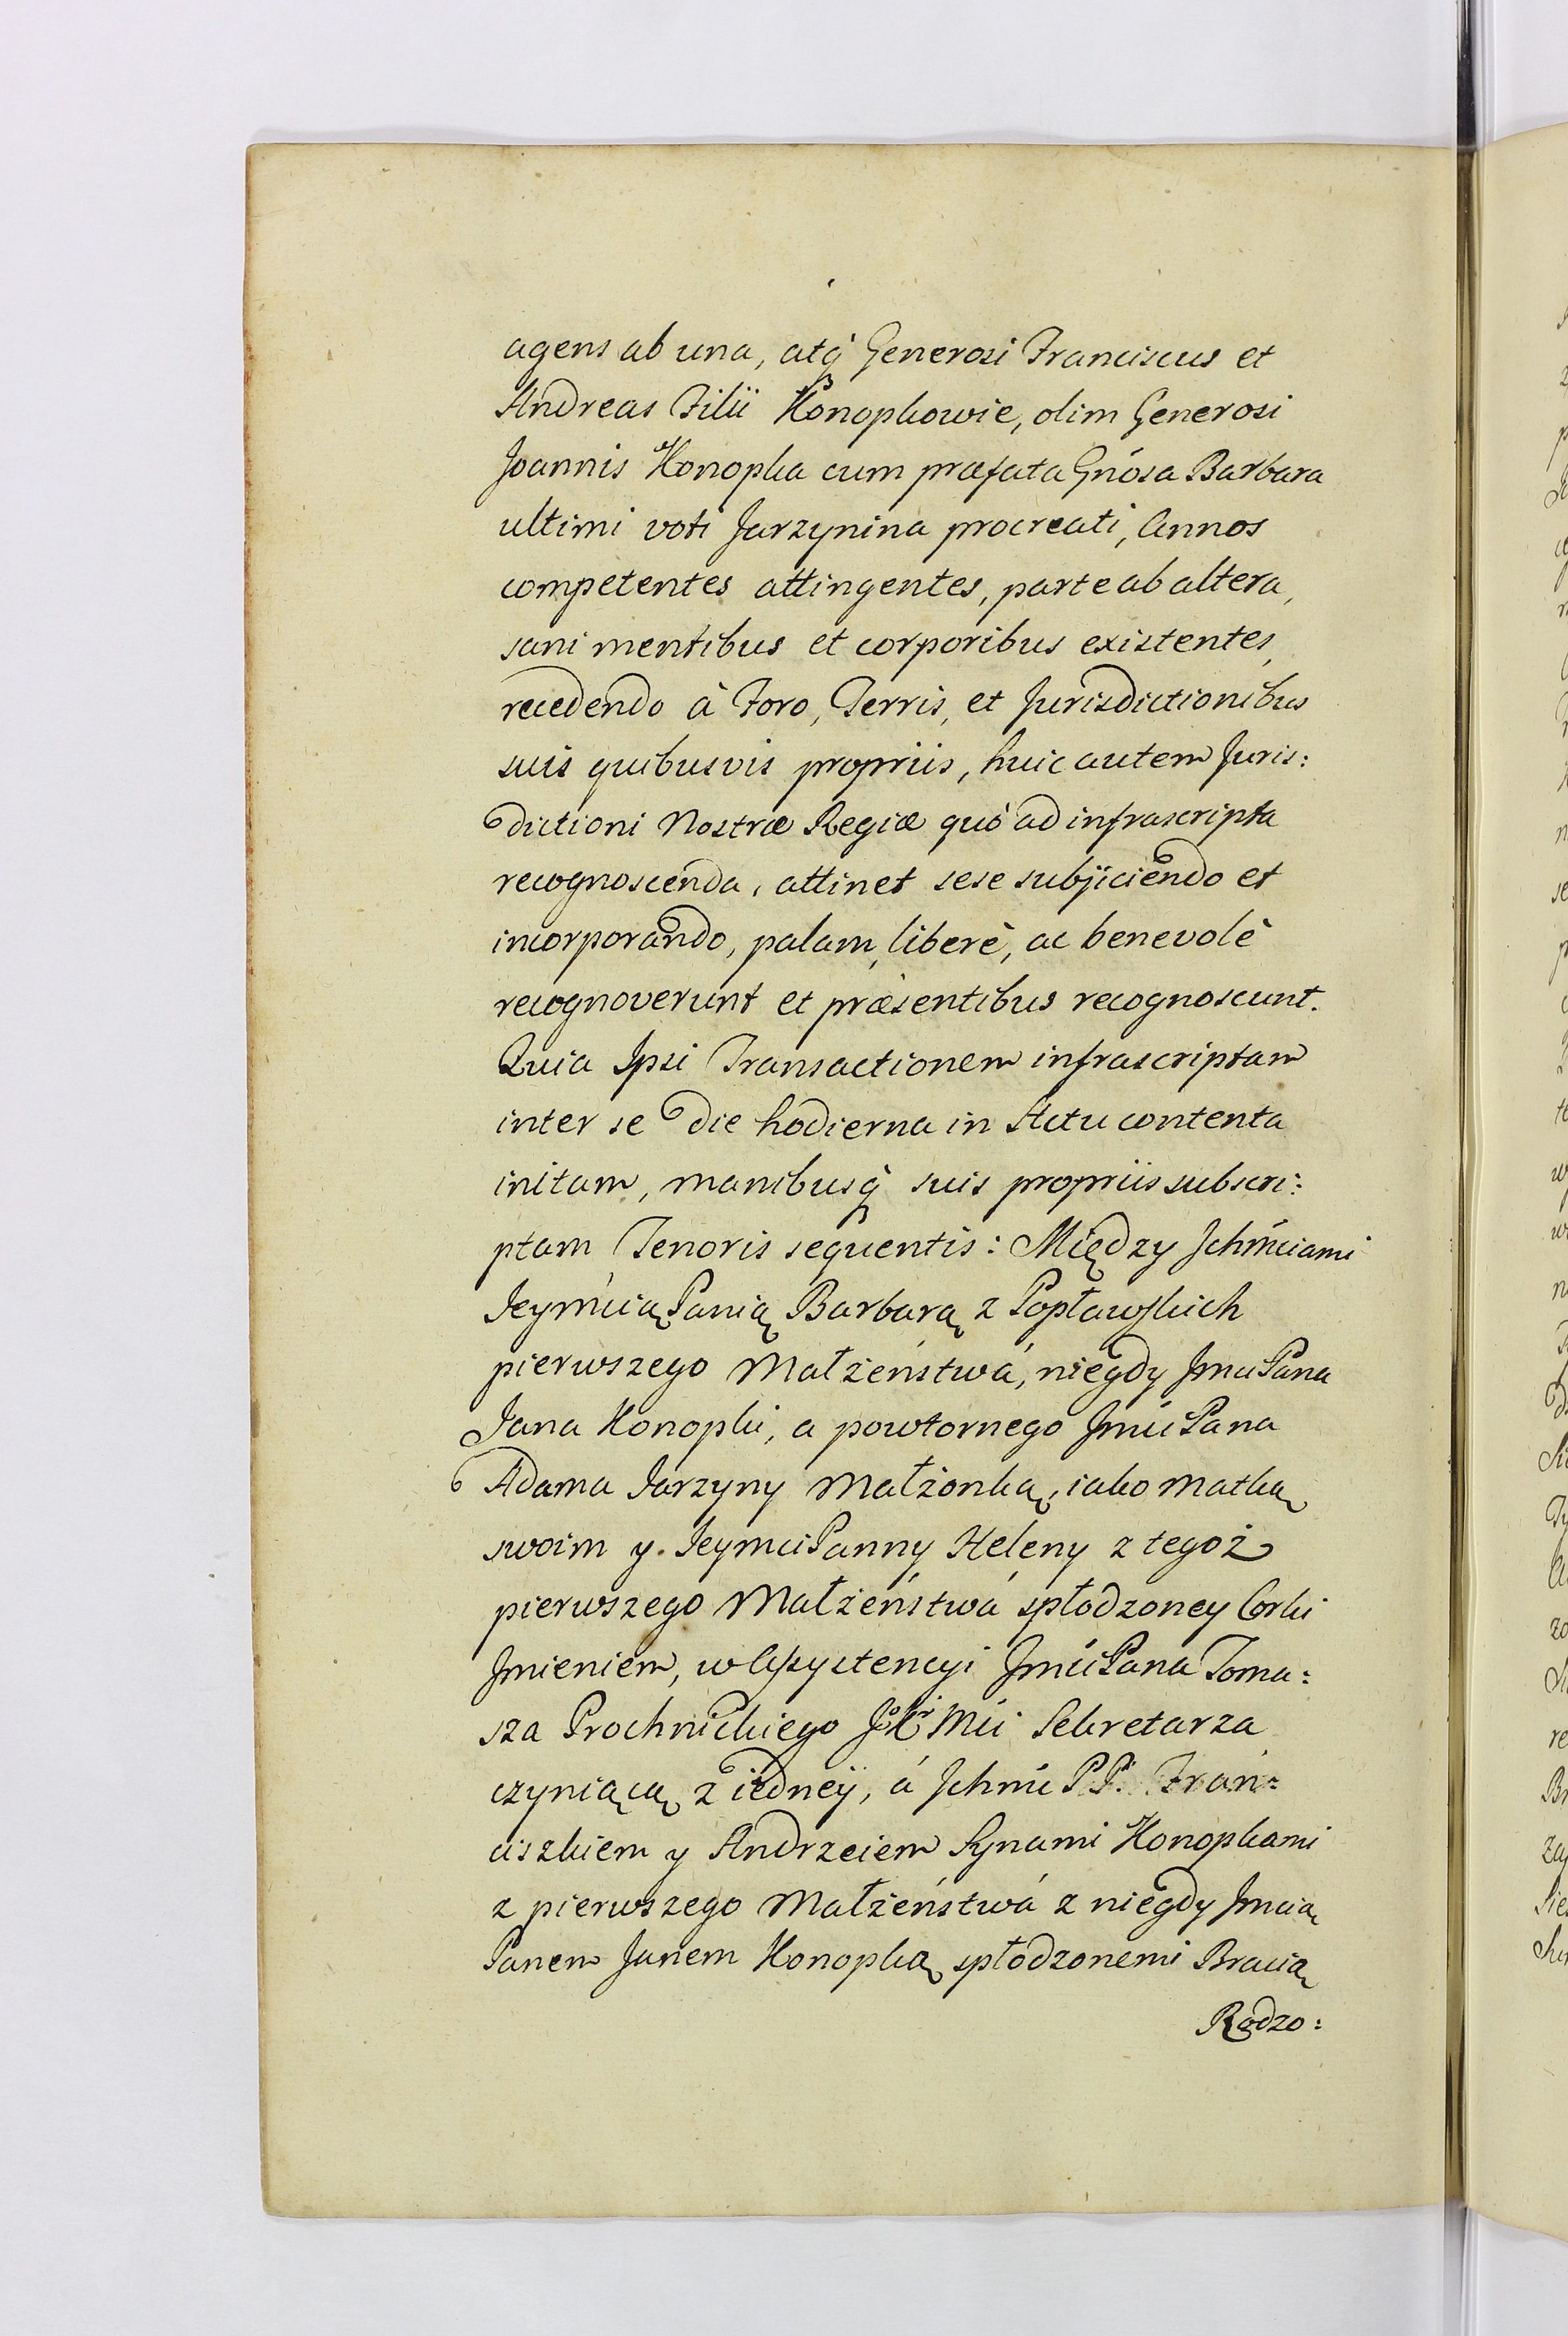 agens ab una, atq́ Generosi Franciscus et
Andreas Filii Konopkowie, olim Generosi
Joannis Konopka cum præfata Gńosa Barbara
ultimi voti Jarzynina procreati, Annos
competentes attingentes, parte ab altera,
sani mentibus et corporibus existentes,
recedendo à Foro, Terris, et Jurisdictionibus
suis quibusvis propriis, huic autem Juris:
dictioni Nostræ Regiæ quò ad infrascripta
recognoscenda, attinet sese subjiciendo et
incorporando, palam, liberè, ac benevolè
recognoverunt et præsentibus recognoscunt.
Quia Ipsi Transactionem infrascriptam
inter se die hodierna in Actu contenta
initam, manibusq́ suis propriis subscri:
ptam Tenoris sequentis: Między Jchmciami
Jeymcią Panią Barbarą z Popławskich
pierwszego Małżeństwá, niegdy Jmci Pana
Jana Konopki, a powtornego Jmci Pana
Adama Jarzyny Małżonką, iako Matką
swoim y Jeymci Panny Heleny z tegoż
pierwszego Małżeństwá spłodzoney Corki
Jmieniem, w Assystencyi Jmci Pana Toma:
sza Prochnickiego JKr Mci Sekretarza
czyniącą z iedney, á Jchmc PP. Fran:
ciszkiem y Andrzeiem Synami Konopkami
z pierwszego Małżeństwá z niegdy Jmcią
Panem Janem Konopką spłodzonemi Bracią
Rodzo: